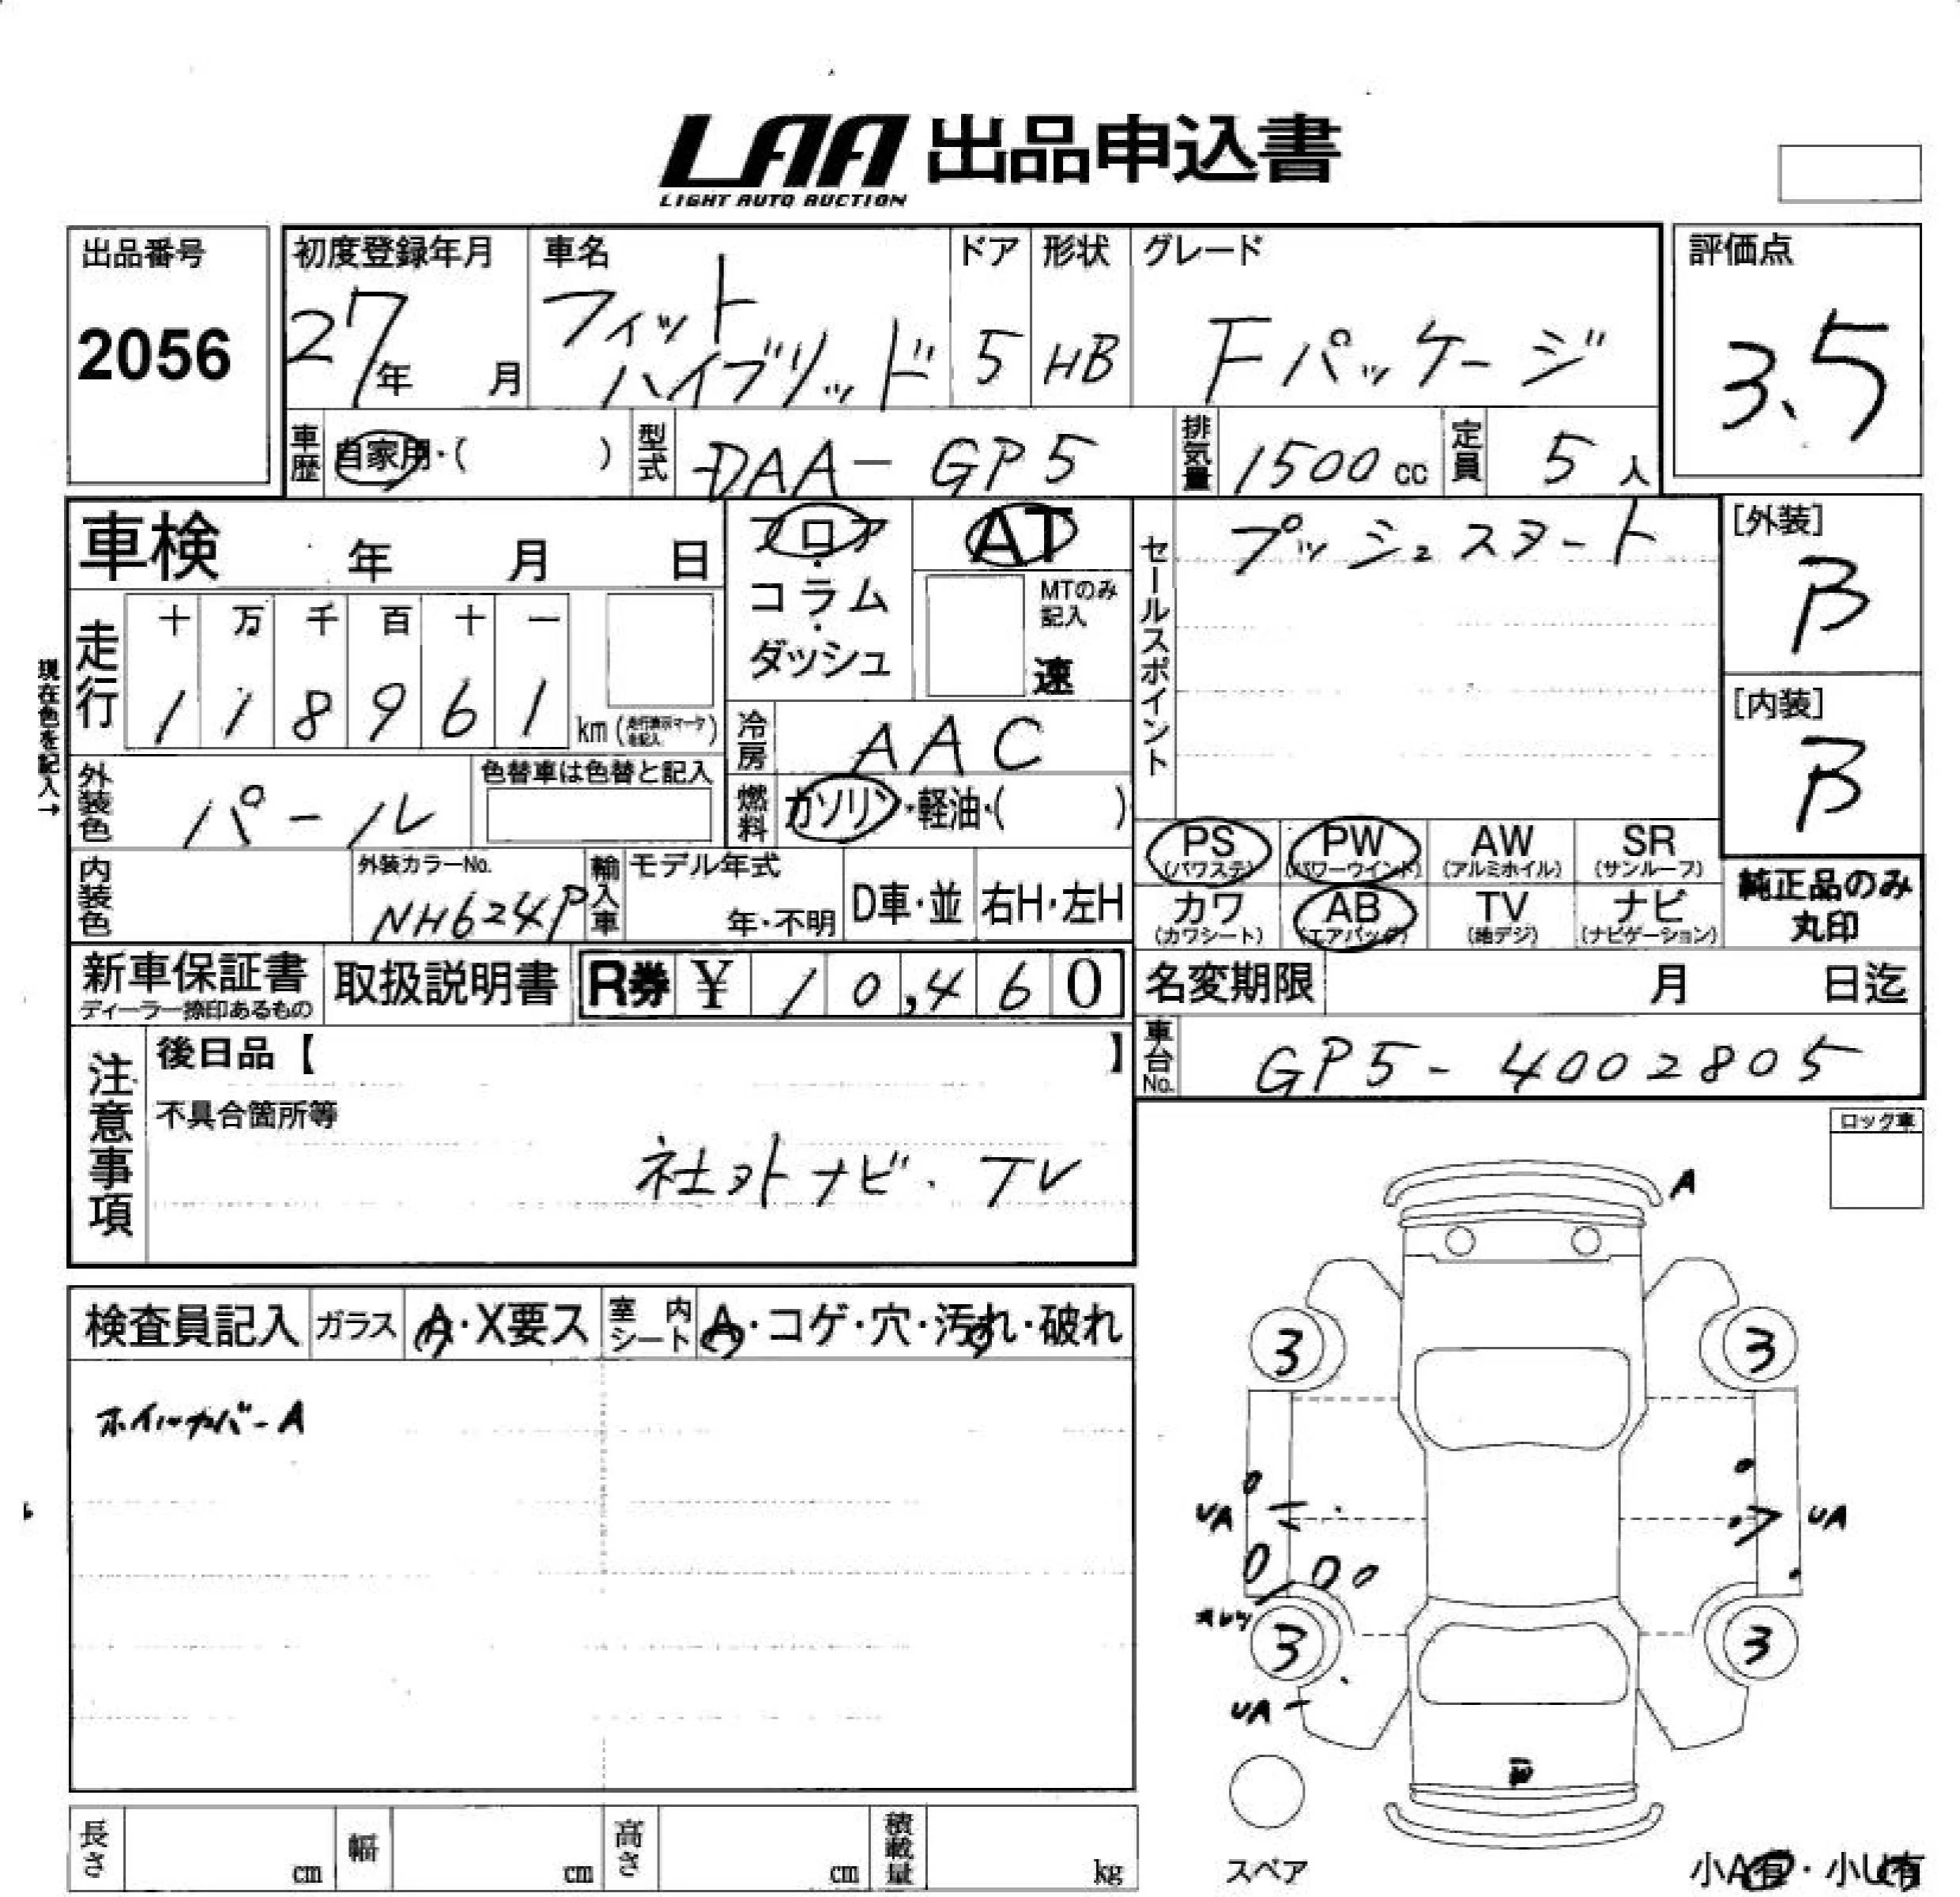 LAA 出品申込書
LIGHT AUTO AUCTION
出品番号
2056
初度登録年月
27年 月
車名
フィット
ハイブリッド
ドア
5
形状
HB
グレード
Fパッケージ
評価点
3.5
車歴 自家用・( )
型式 DAA-GP5
排気量 1500cc
定員 5人
車検 年 月 日
フロア・コラム・ダッシュ
AT
MTのみ記入
速
セールスポイント
プッシュスタート
[外装]
B
[内装]
B
現在色を記入→
走行
十 万 千 百 十 一
1 1 8 9 6 1 km
冷房 AAC
外装色 パール
色替車は色替と記入
燃料 ガソリン・軽油・( )
PS (パワステ)
PW (パワーウインド)
AW (アルミホイル)
SR (サンルーフ)
カワ (カワシート)
AB (エアバッグ)
TV (地デジ)
ナビ (ナビゲーション)
純正品のみ
丸印
内装色
外装カラーNo.
NH624P
輸入車
モデル年式
年・不明
D車・並
右H・左H
新車保証書
ディーラー捺印あるもの
取扱説明書
R券 ¥ 10,460
名変期限 月 日迄
車台No. GP5-4002805
注意事項
後日品【 】
不具合箇所等
社外ナビ.TV
ロック車
検査員記入
ガラス A・X要ス
室内シート A・コゲ・穴・汚れ・破れ
A
3 3
UA
UA
3 3
UA
スペア
小A有・小U有
長さ cm
幅 cm
高さ cm
積載量 kg